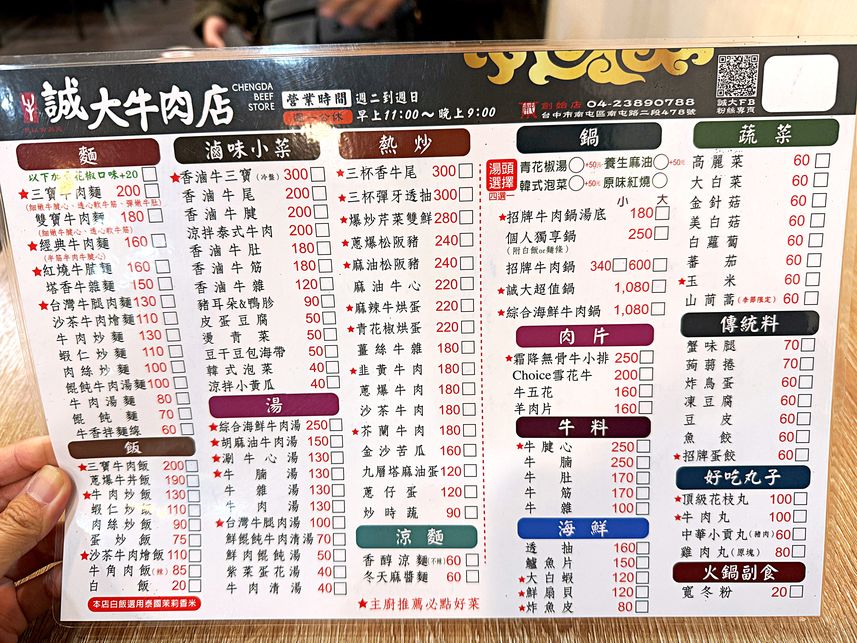 誠大牛肉店
CHENGDA
BEEF
STORE
營業時間 週二到週日
週一公休 早上11:00～晚上9:00
創始店 04-23890788
台中市南屯區南屯路二段478號
誠大FB
粉絲專頁
麵
以下加青花椒口味+20
★三寶牛肉麵 200
(細嫩牛腱心、透心軟牛筋、彈嫩牛肚)
雙寶牛肉麵 180
(細嫩牛腱心、透心軟牛筋)
★經典牛肉麵 160
(半筋半肉牛腱心)
★紅燒牛腩麵 160
塔香牛雜麵 150
★台灣牛腿肉麵 130
沙茶牛肉燴麵 110
牛肉炒麵 130
蝦仁炒麵 110
肉絲炒麵 100
餛飩牛肉湯麵 100
牛肉湯麵 80
餛飩麵 70
牛香拌麵線 60
飯
★三寶牛肉飯 200
蔥爆牛丼飯 190
★牛肉炒飯 130
蝦仁炒飯 110
肉絲炒飯 90
蛋炒飯 75
★沙茶牛肉燴飯 110
牛角肉飯(辣) 85
白飯 20
本店白飯選用泰國茉莉香米
滷味小菜
★香滷牛三寶(冷盤) 300
香滷牛尾 200
香滷牛腱 200
涼拌泰式牛肉 200
香滷牛肚 180
香滷牛筋 180
香滷牛雜 120
豬耳朵&鴨胗 90
皮蛋豆腐 50
燙青菜 50
豆干豆包海帶 50
韓式泡菜 40
涼拌小黃瓜 40
湯
★綜合海鮮牛肉湯 250
★胡麻油牛肉湯 150
★涮牛心湯 130
★牛腩湯 130
牛雜湯 130
牛肉湯 130
★台灣牛腿肉湯 100
鮮餛飩牛肉清湯 70
鮮肉餛飩湯 50
紫菜蛋花湯 40
牛肉清湯 40
熱炒
★三杯香牛尾 300
★三杯彈牙透抽 300
★爆炒芹菜雙鮮 280
★蔥爆松阪豬 240
★麻油松阪豬 240
麻油牛心 220
★麻辣牛烘蛋 220
★青花椒烘蛋 220
薑絲牛雜 180
★韭黃牛肉 180
蔥爆牛肉 180
沙茶牛肉 180
★芥蘭牛肉 180
金沙苦瓜 160
九層塔麻油蛋 120
蔥仔蛋 120
炒時蔬 90
涼麵
香醇涼麵(不辣) 60
冬天麻醬麵 60
★主廚推薦必點好菜
鍋
湯頭選擇 四選一
青花椒湯 +50元 養生麻油 +50元
韓式泡菜 原味紅燒
小 大
★招牌牛肉鍋湯底 180
個人獨享鍋 250
(附白飯or麵條)
招牌牛肉鍋 340 600
★誠大超值鍋 1,080
★綜合海鮮牛肉鍋 1,080
肉片
★霜降無骨牛小排 250
Choice雪花牛 200
牛五花 160
羊肉片 160
牛料
★牛腱心 250
牛腩 250
牛肚 170
牛筋 170
牛雜 100
海鮮
透抽 160
鱸魚片 150
★大白蝦 120
★鮮扇貝 120
★炸魚皮 80
蔬菜
高麗菜 60
大白菜 60
金針菇 60
美白菇 60
白蘿蔔 60
蕃茄 60
★玉米 60
山茼蒿(季節限定) 60
傳統料
蟹味腿 70
蒟蒻捲 70
炸鳥蛋 60
凍豆腐 60
豆皮 60
魚餃 60
★招牌蛋餃 60
好吃丸子
★頂級花枝丸 100
★牛肉丸 100
中華小貢丸(豬肉) 60
雞肉丸(原塊) 80
火鍋副食
寬冬粉 20